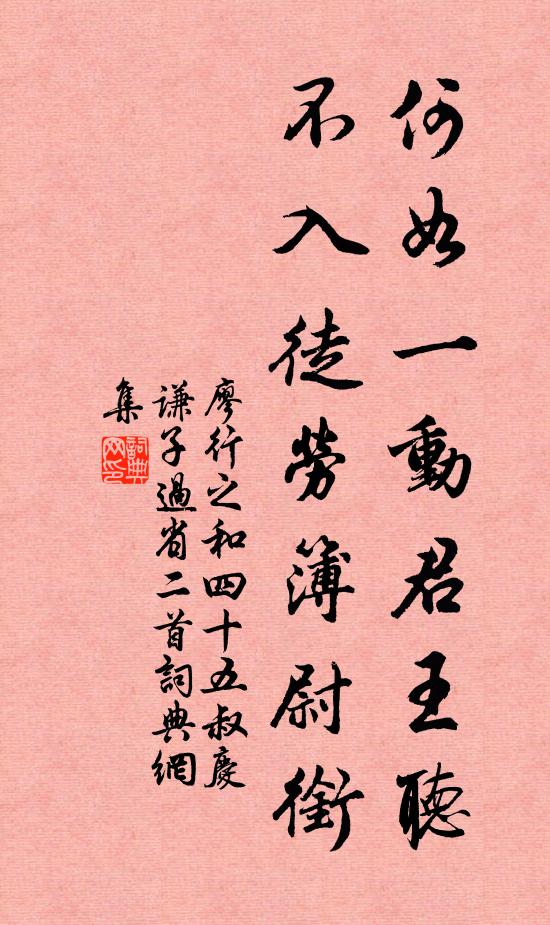 何如一動君王聽
不入徒勞簿尉銜
廖行之和四十五叔慶
謙子過省二首詞典網
集
詞典
网印